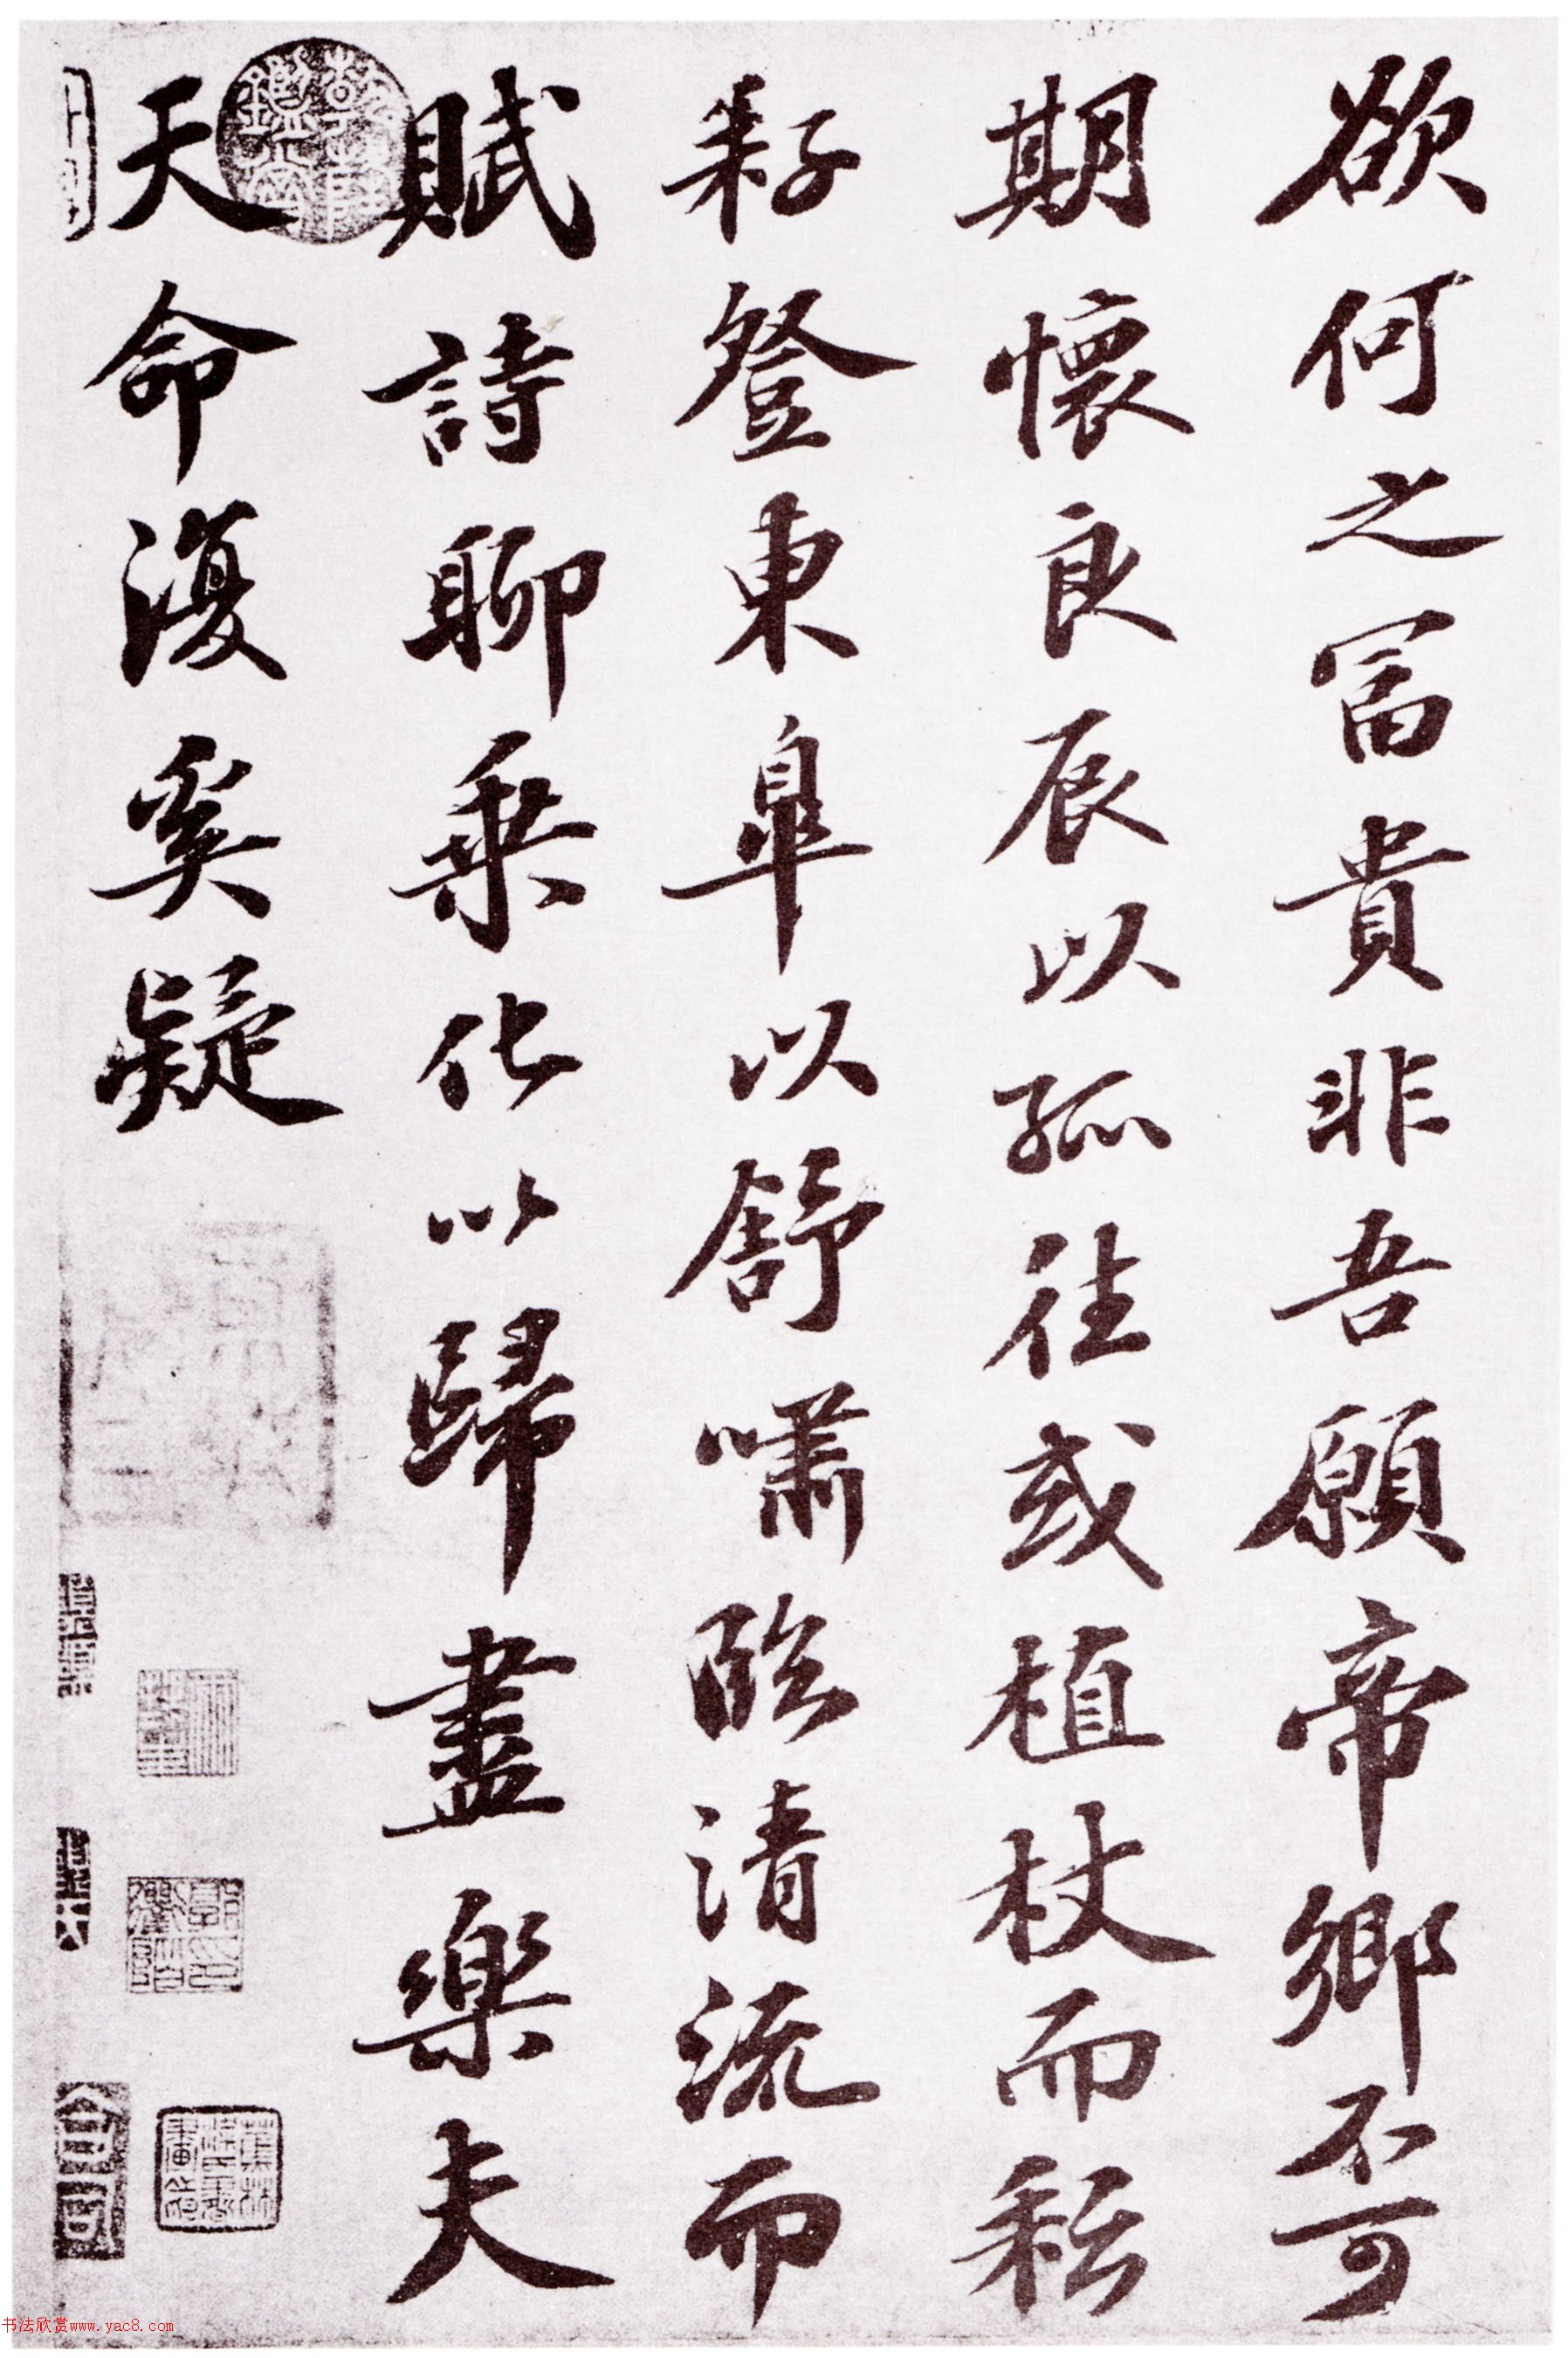 欲何之冨貴非吾願帝鄉不可
期懷良辰以孤往或植杖而耘
耔登東皐以舒嘯臨清流而
賦詩聊乗化以歸盡樂夫
天命復奚疑
乾隆鑑賞
书法欣赏www.yac8.com